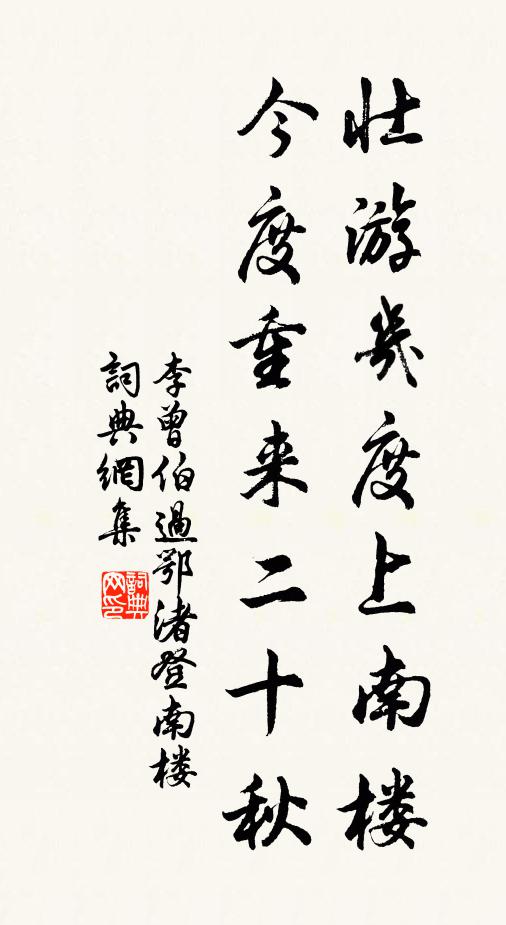 壮游幾度上南楼
今度重来二十秋
李曾伯過鄂渚登南楼
詞典網集
詞典网印